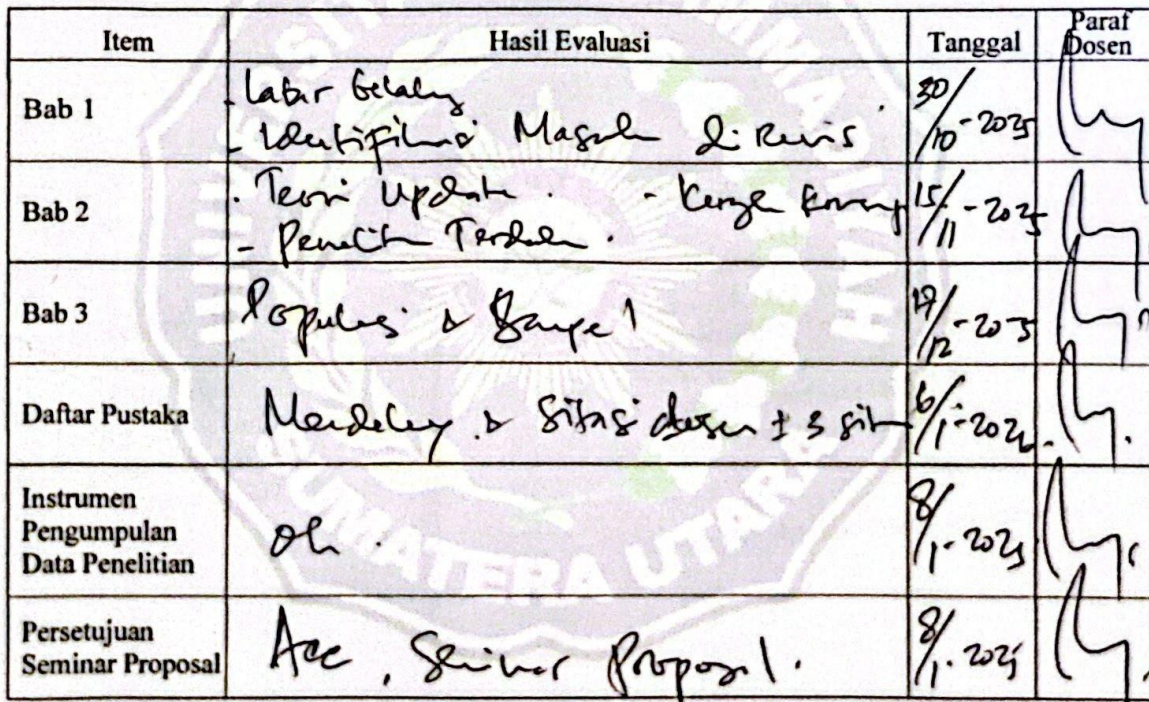 Item Hasil Evaluasi Tanggal Paraf Dosen
Bab 1
- Latar Belakang
- Identifikasi Masalah di Revis
30/10-2025
Bab 2
- Teori Update.
- Penelitian Terdahulu.
15/11-2025
Bab 3
Populasi & Sampel
/12-2025
Daftar Pustaka
Mendeley & Sitasi dosen ± 3
6/1-
Instrumen
Pengumpulan
Data Penelitian
Ok.
8/1-
Persetujuan
Seminar Proposal
Acc, Seminar Proposal.
8/1-
SUMATERA UTARA